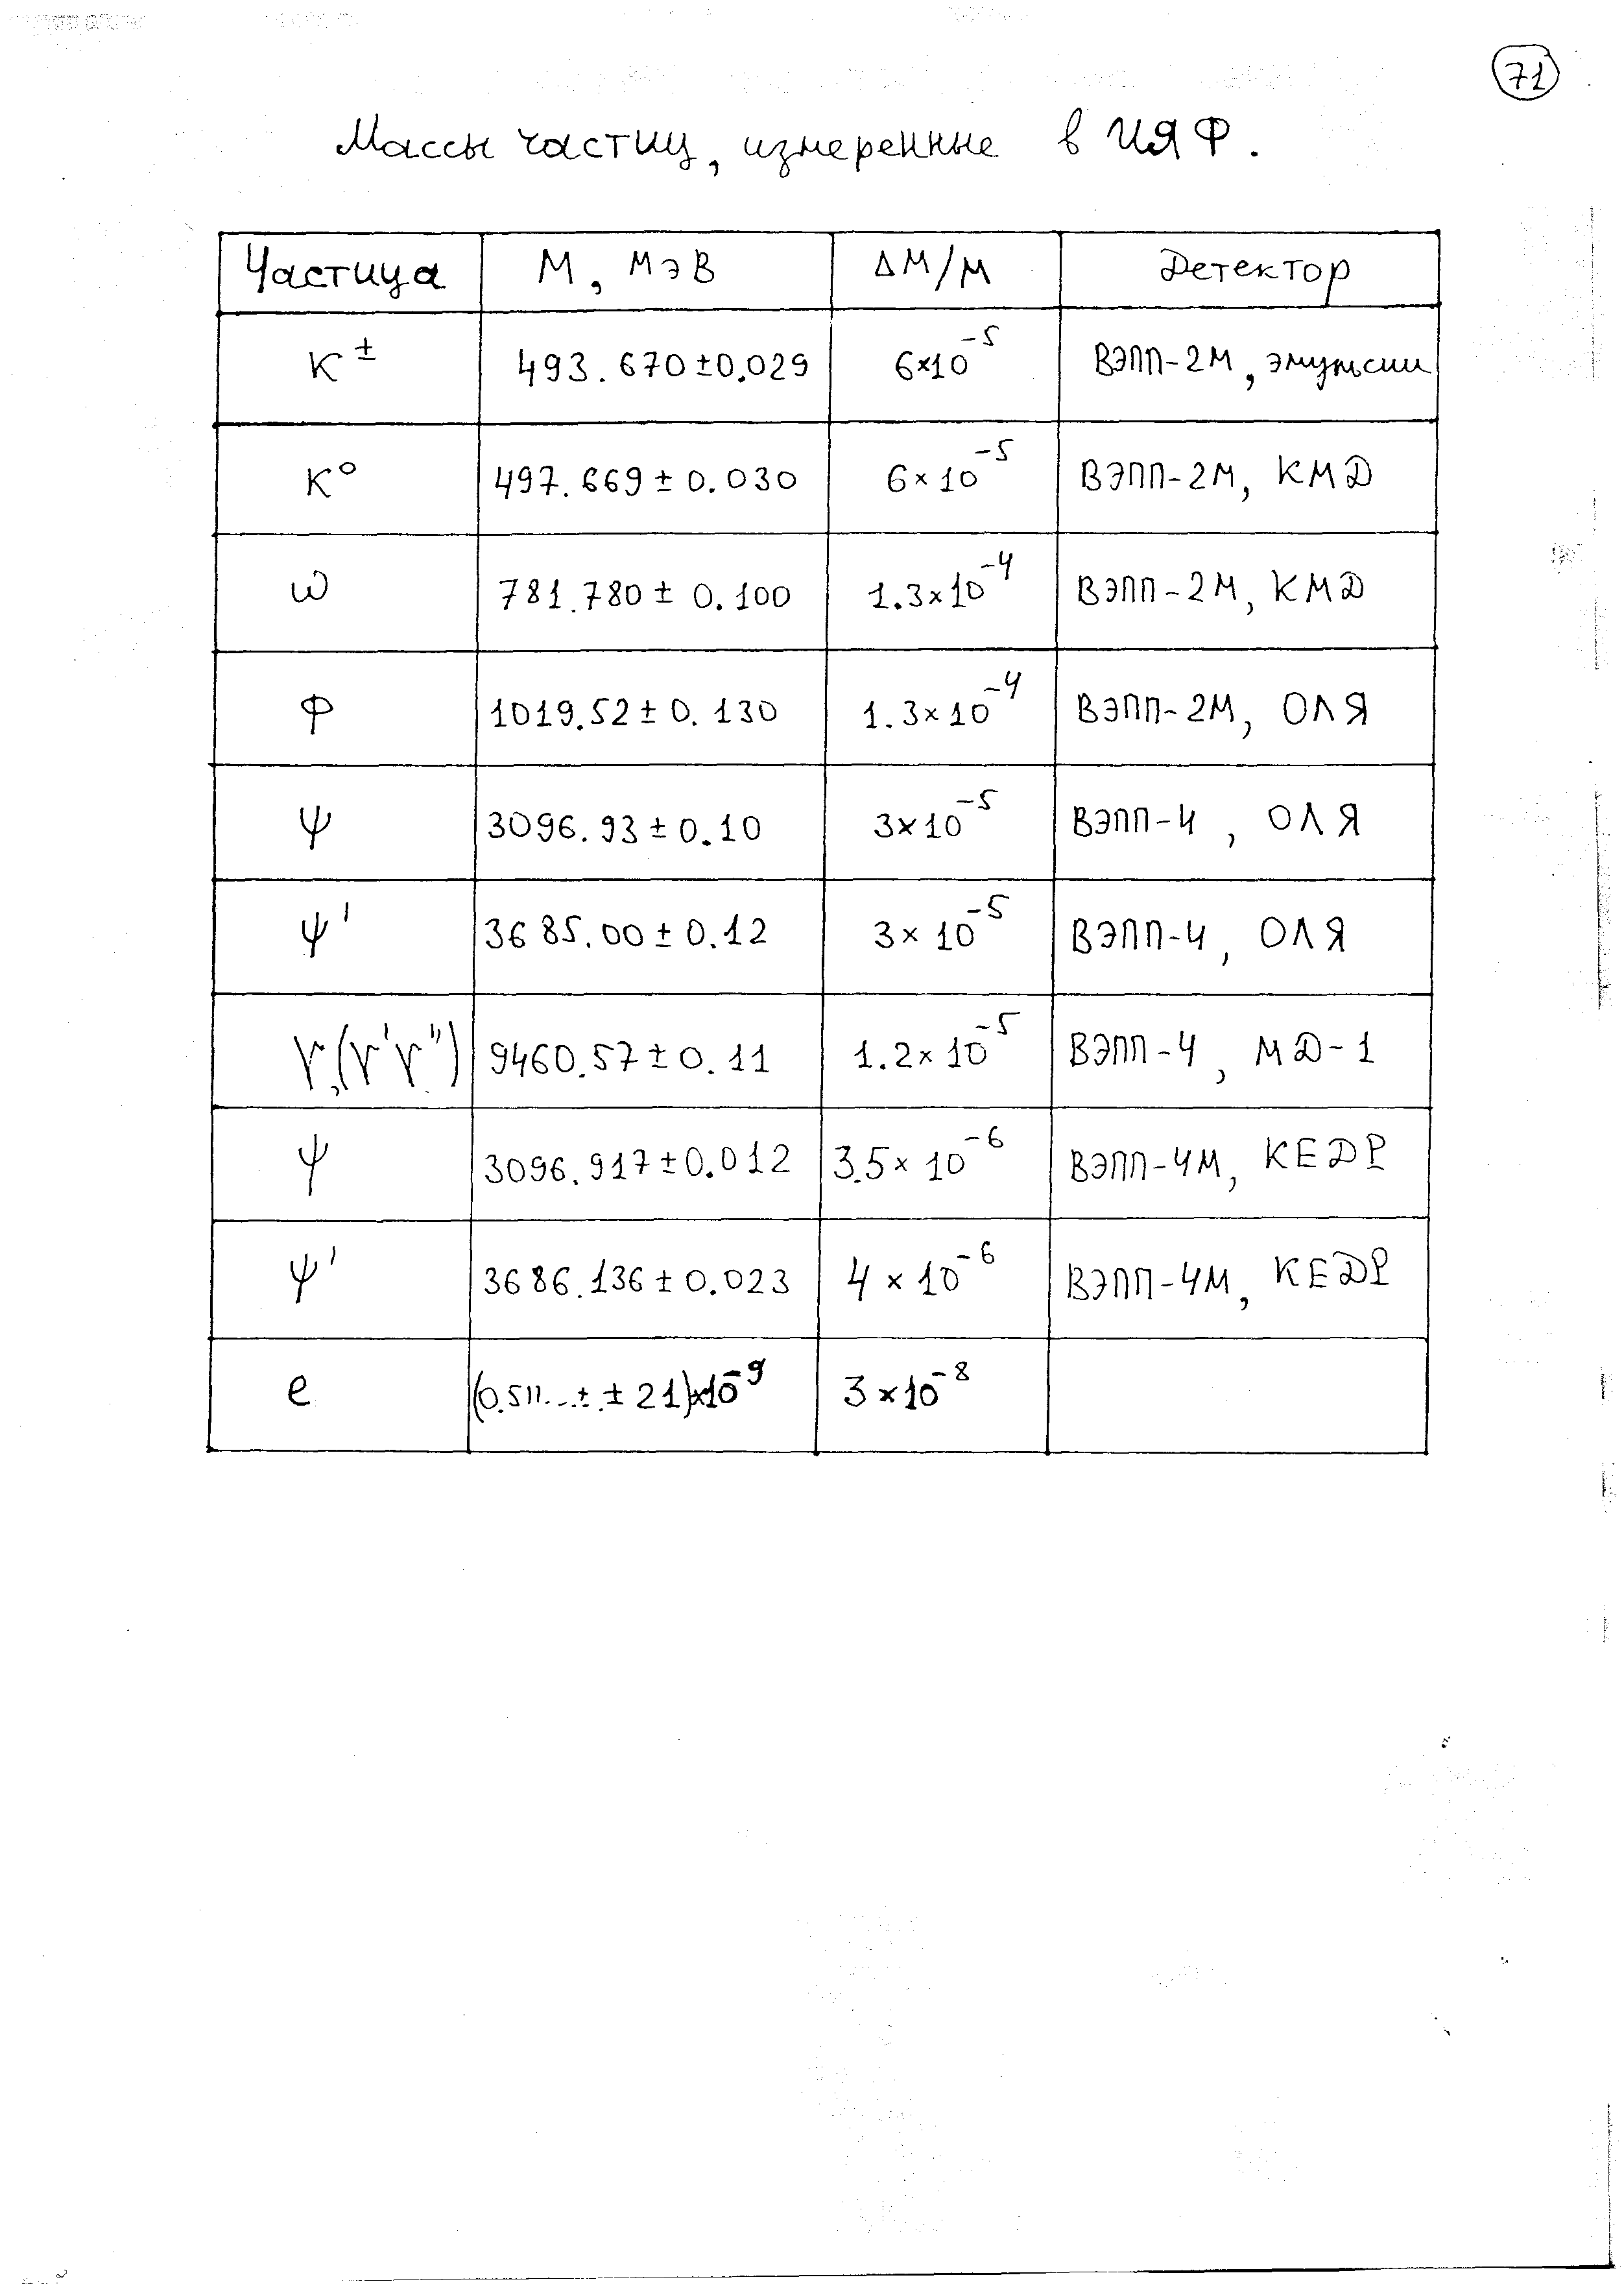 71
Массы частиц, измеренные в ИЯФ.
Частица М, МэВ ΔМ/М Детектор
K± 493.670±0.029 6×10⁻⁵ ВЭПП-2М, эмульсии
K⁰ 497.669±0.030 6×10⁻⁵ ВЭПП-2М, КМД
ω 781.780±0.100 1.3×10⁻⁴ ВЭПП-2М, КМД
Φ 1019.52±0.130 1.3×10⁻⁴ ВЭПП-2М, ОЛЯ
ψ 3096.93±0.10 3×10⁻⁵ ВЭПП-4, ОЛЯ
ψ' 3685.00±0.12 3×10⁻⁵ ВЭПП-4, ОЛЯ
ϒ,(ϒ'ϒ'') 9460.57±0.11 1.2×10⁻⁵ ВЭПП-4, МД-1
ψ 3096.917±0.012 3.5×10⁻⁶ ВЭПП-4М, КЕДР
ψ' 3686.136±0.023 4×10⁻⁶ ВЭПП-4М, КЕДР
e (0.511...±.±21)×10⁻⁹ 3×10⁻⁸